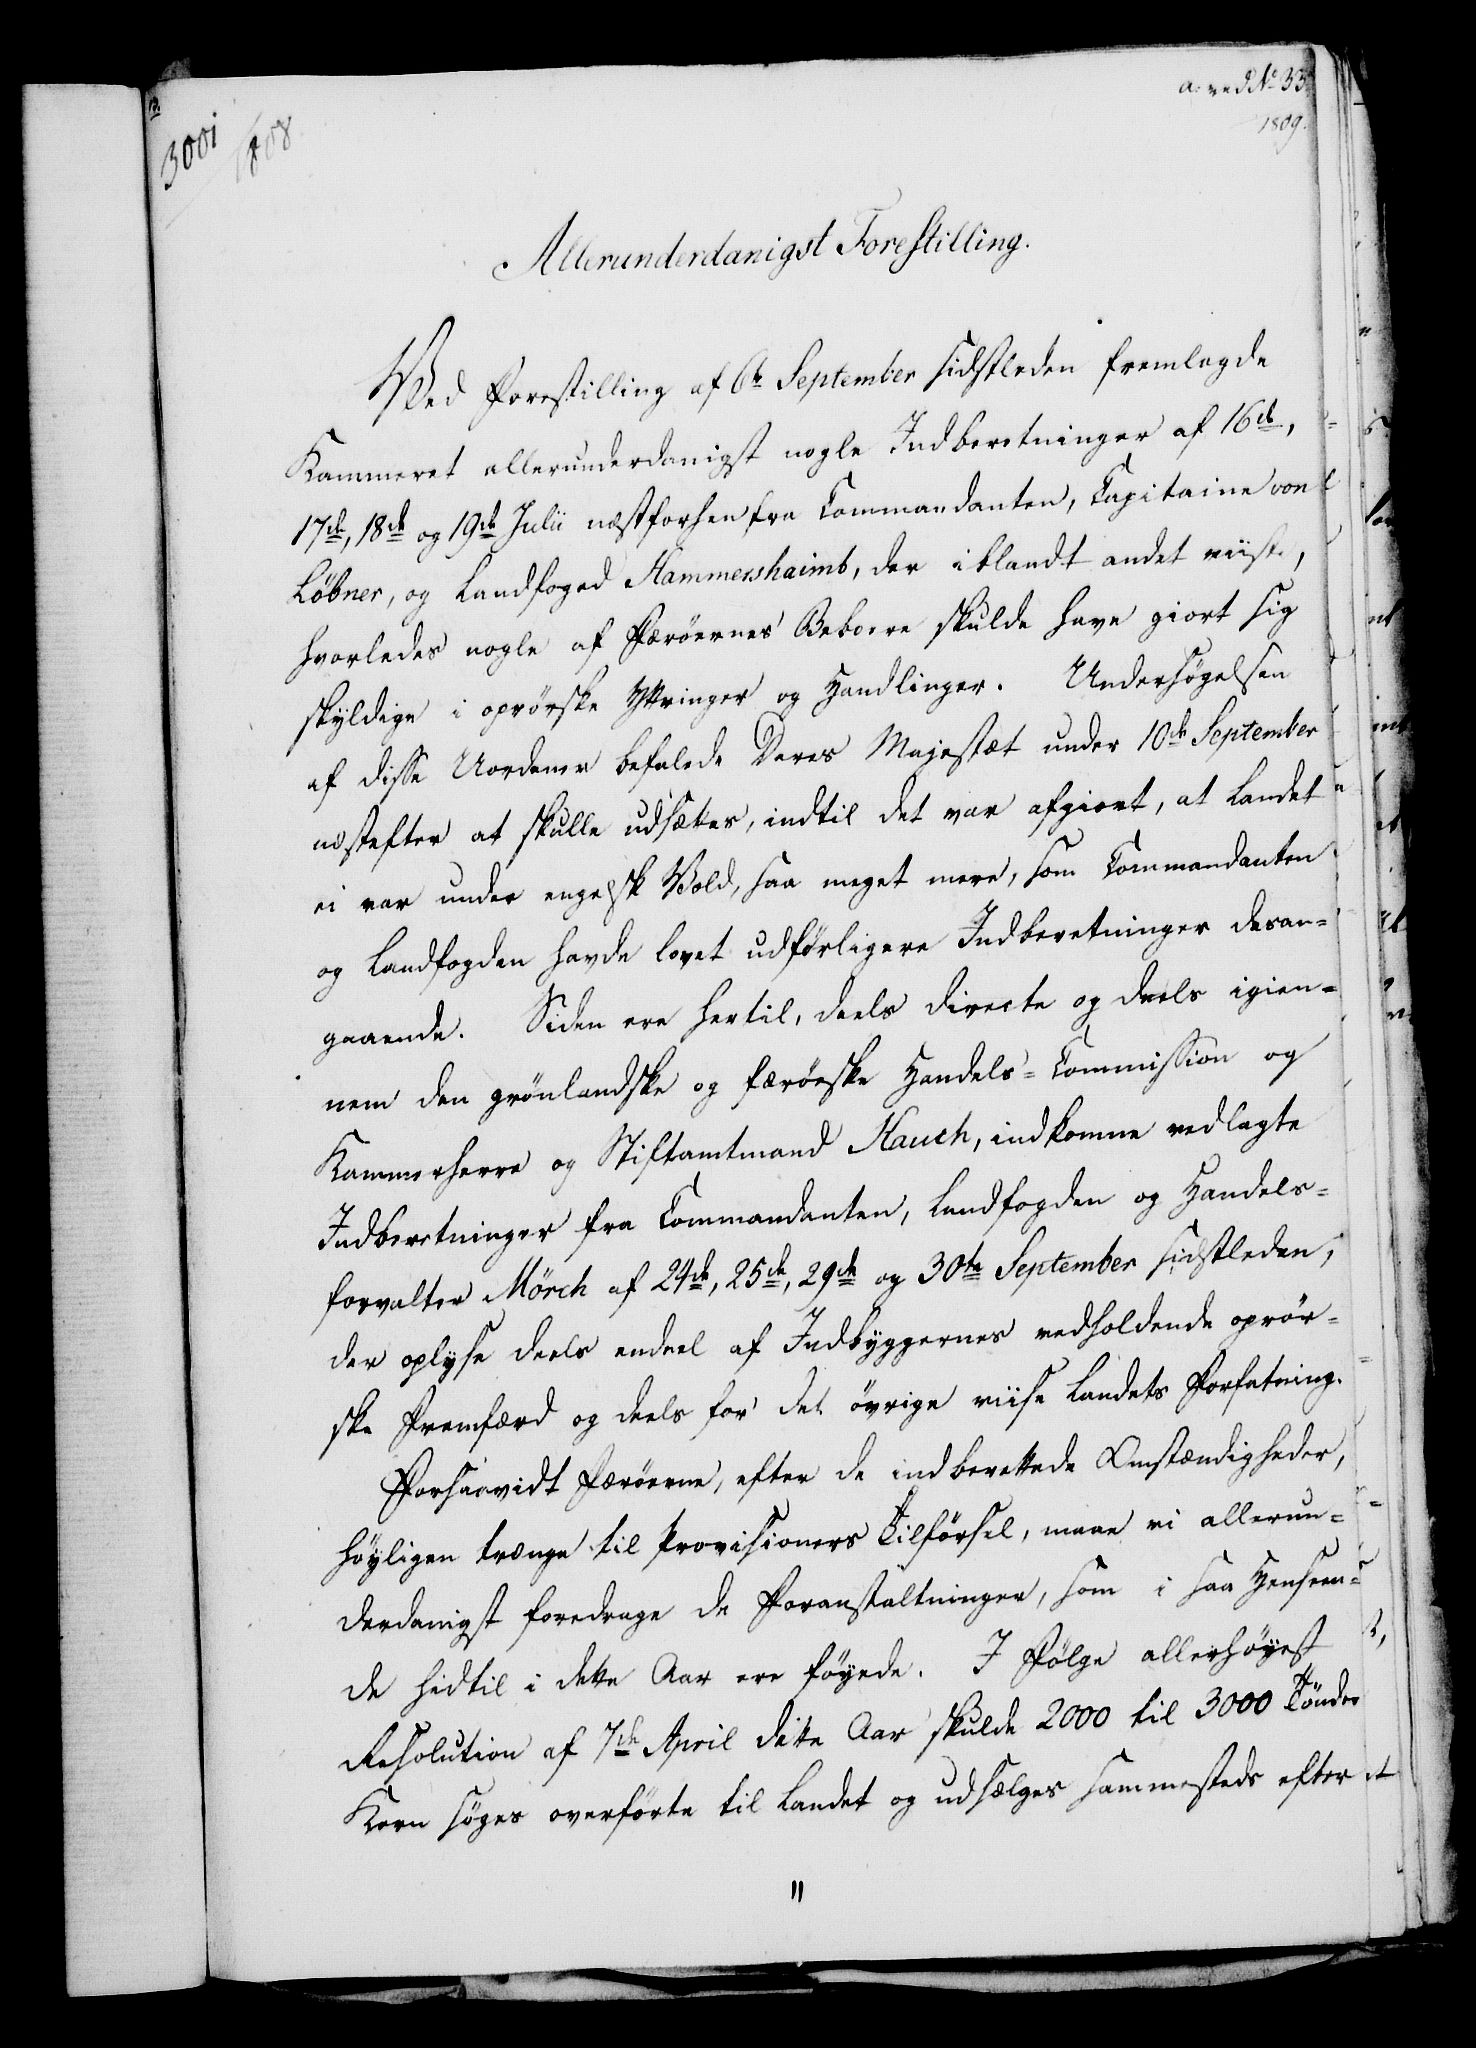 a. ved No 33
1809.
3001
1808
Allerunderdanigst Forestilling.
Ved Forestilling af 6te September sidstleden fremlagde
Kammeret allerunderdanigst nogle Indberetninger af 16de,
17de, 18de og 19de Julii næstforhen fra Commandanten, Capitaine von
Löbner, og Landfoged Hammershaimb, der iblandt andet viiste,
hvorledes nogle af Færöernes Beboere skulde have giort sig
skyldige i oprörske Yttringer og Handlinger. Undersögelsen
af disse Uordener befalede Deres Majestæt under 10de September
næstefter at skulle udsættes, indtil det var afgiort, at Landet
ei var under engelsk Vold, saa meget mere, som Commandanten
og Landfogden havde lovet udförligere Indberetninger desan-
gaaende. Siden ere hertil, deels directe og deels igien-
nem den grönlandske og færöeske Handels-Commission og
Kammerherre og Stiftamtmand Hauch, indkomne vedlagte
Indberetninger fra Commandanten, Landfogden og Handels-
forvalter Mörch af 24de, 25de, 29de og 30te September sidstleden,
der oplyse deels endeel af Indbyggernes vedholdende oprör-
ske Fremfærd og deels for det övrige viise Landets Forfatning.
Forsaavidt Færöerne, efter de indberettede Omstændigheder,
höyligen trænge til Provisioners Tilförsel, maae vi allerun-
derdanigst foredrage de Foranstaltninger, som i saa Henseen-
de hidtil i dette Aar ere föyede. I Fölge allerhöyest
Resolution af 7de April dette Aar skulde 2000 til 3000 Tönder
Korn söges overförte til Landet og udsælges sammesteds efter